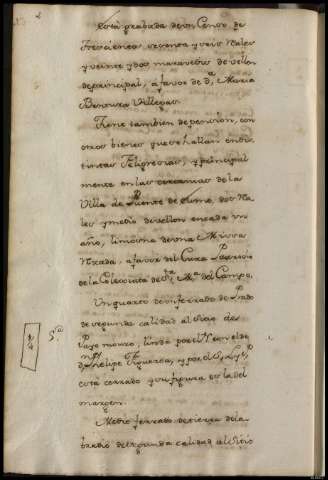 Está grabada de un Censo de
trescientos, sesenta y seis Rales
y veinte y dos maravedis de vellon
de principal, a favor de d.ª Maria
Benura Villegas.
Tiene tambien de pension, con
otros bienes que se hallan en dis
tinctas Feligresias, y principal
mente en las cercanias de la
Villa de Puente de Eume, dos Ra
les y medio de vellon en cada un
año, limosna de una Missa
Rezada, a favor del Cura Parroco
de la Colegiata de S.ta M.ª del Campo.
Un quarto de un ferrado de Prado
de segunda calidad al Sitio de
Payo mouro, linda por el N. con el de
d.n Phelipe Figueroa, y por el
está cerrado y su figura es la del
margen.
Medio ferrado de tierra de la
bradio de segunda calidad al Sitio